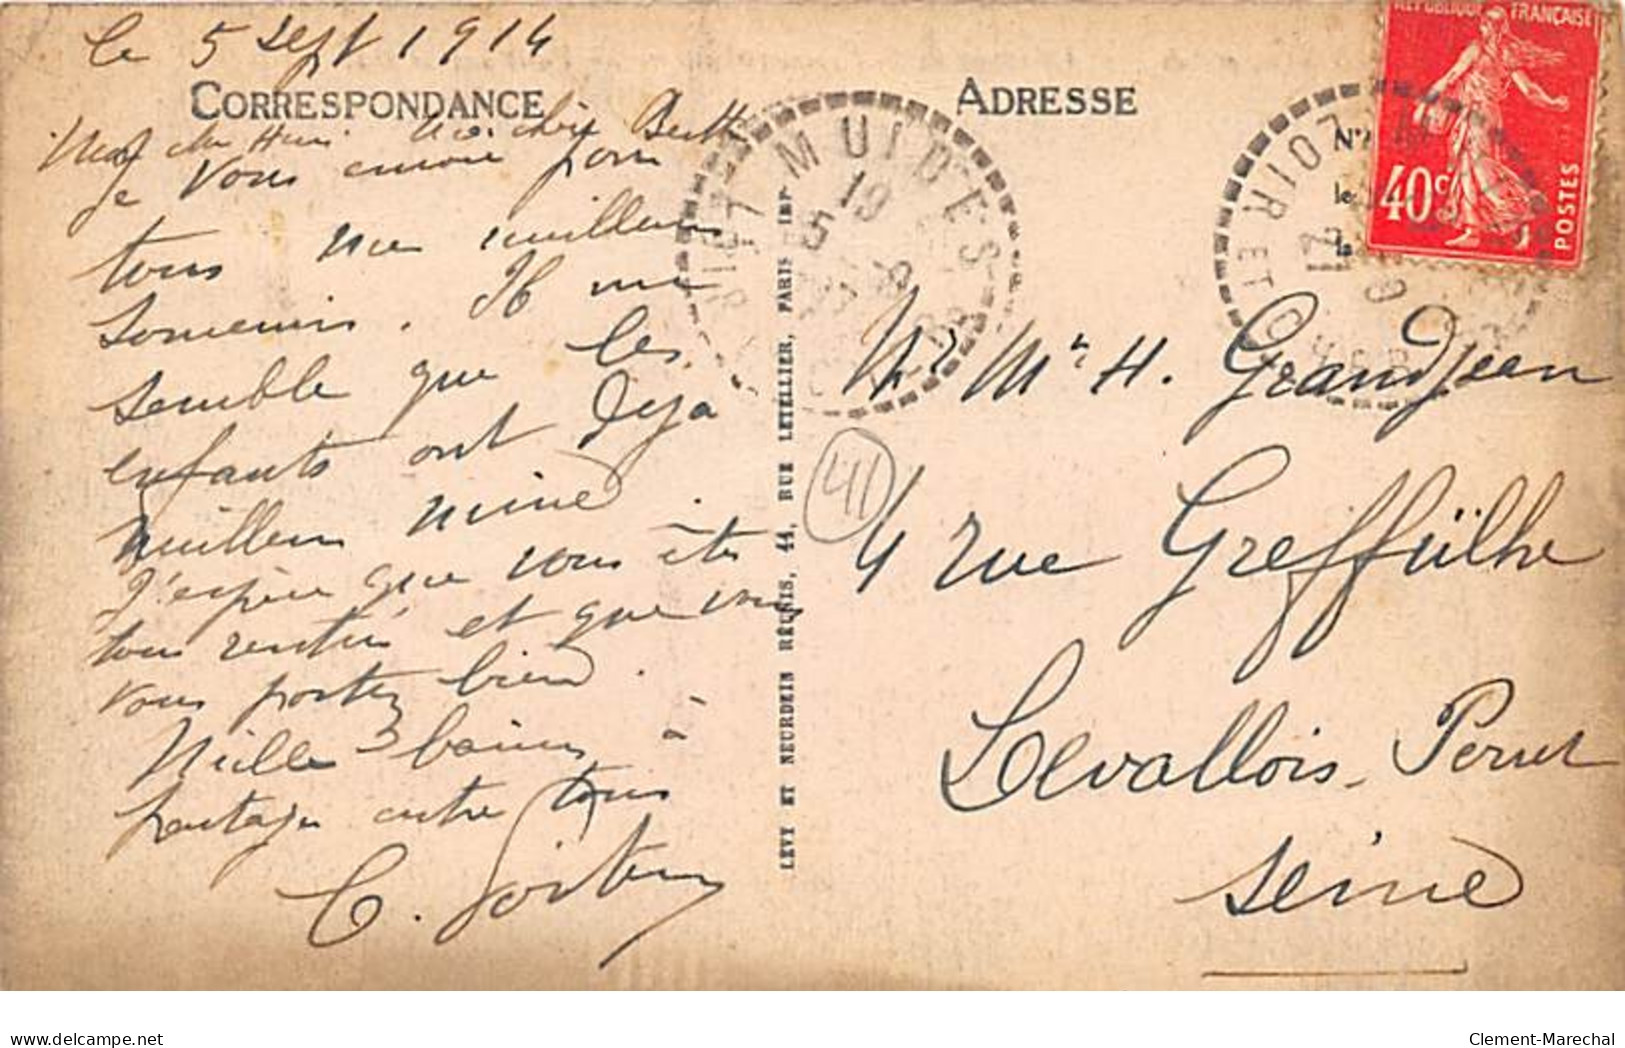 le 5 Sept 1914
CORRESPONDANCE
Berthe
je vous envoie pour
tous mes meilleurs
souvenirs. Il me
semble que les
enfants ont deja
meilleur mine
J'espère que vous êtes
tous rentrés et que vous
vous portez bien.
Mille baisers à
partager entre tous
ADRESSE
MUIDES
LOIR ET
RÉPUBLIQUE FRANÇAISE
40c
POSTES
Mr Mme H. Grandjean
4 rue Greffülhe
Levallois-Perret
Seine
41
LEVY ET NEURDEIN RÉUNIS, 44, RUE LETELLIER, PARIS IMP
delcampe.net
Clement-Marechal